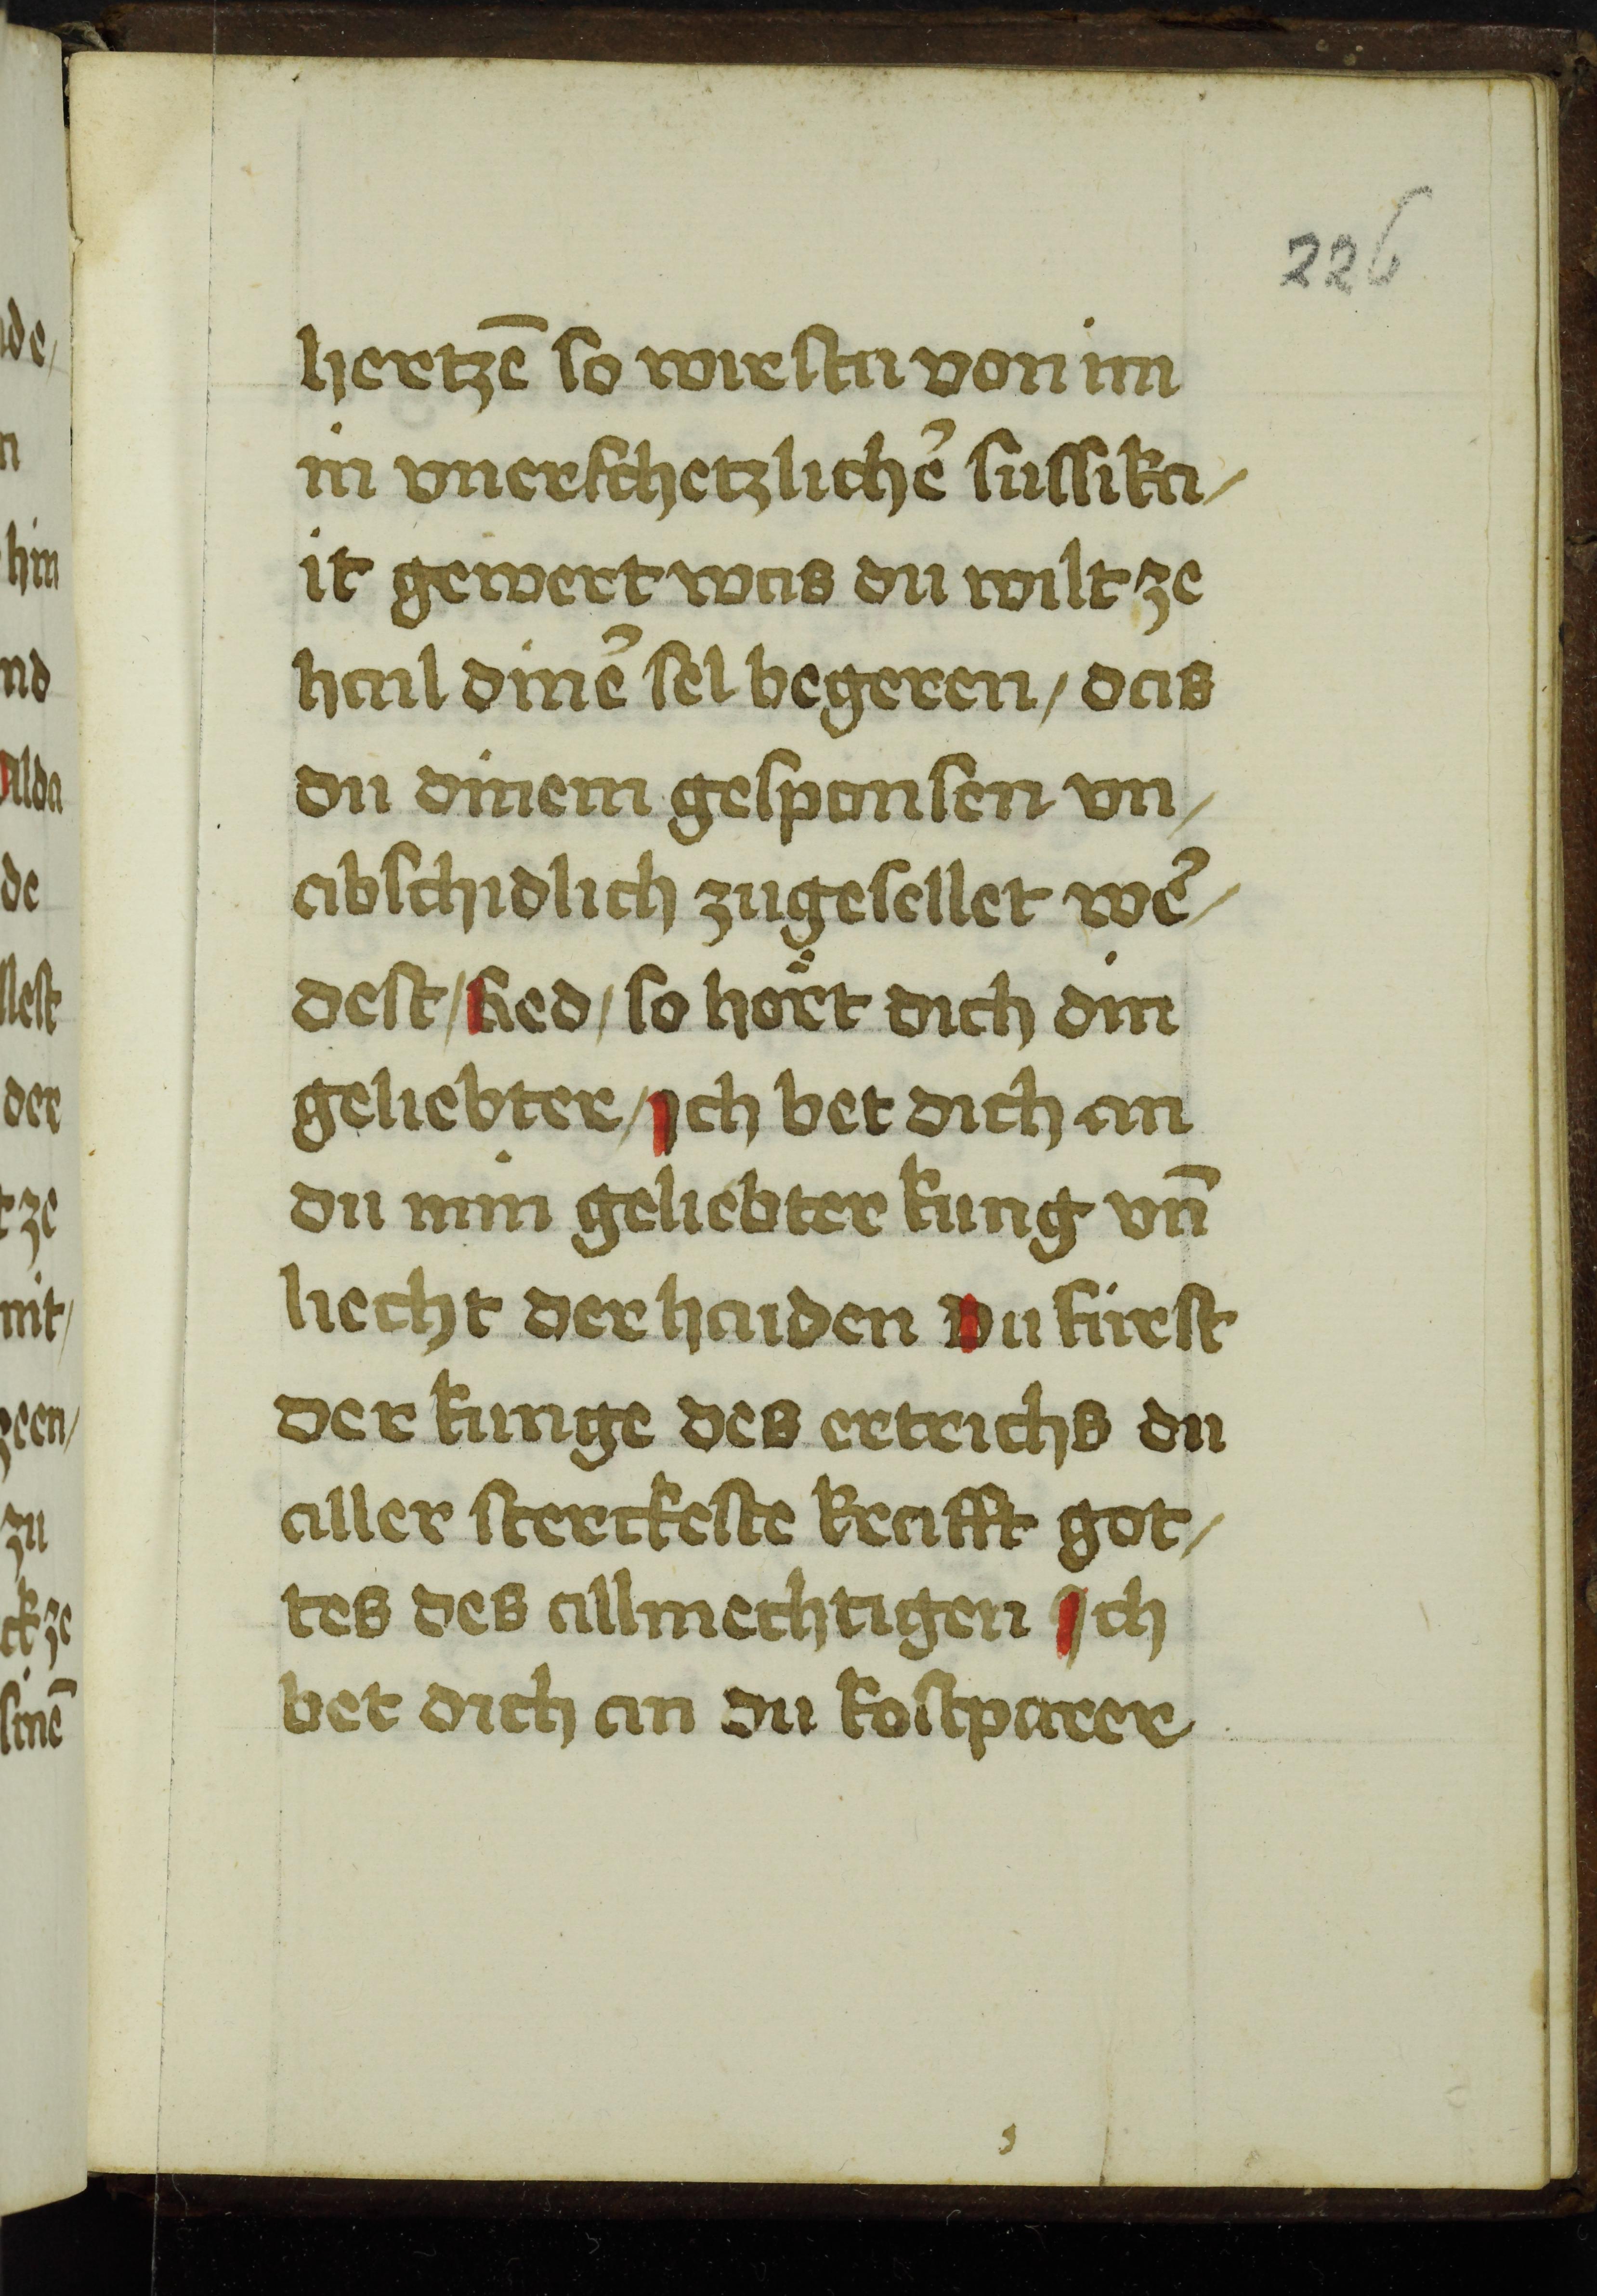 226
hertzē so wirstu von im
in vnerschetzlichẽ sussika/
it gewert was du wilt ze
hail dinẽ sel begeren / das
du dinem gesponsen vn/
abschidlich zugesellet wẽ/
dest / Red / so hoͤrt dich din
geliebter / Ich bet dich an
du min geliebter kung vn̄
liecht der haiden Du fürst
der kunge des ertrichs du
aller sterckeste krafft got/
tes des allmechtigen Ich
bet dich an du kostparer